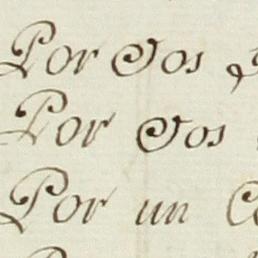 Por dos
Por dos
Por un